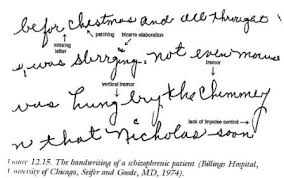 befor chestmas and all throught
patching bizarre elaboration
missing letter
was slirrging. not even mouse
tremor
vertical tremor
was hung bry the chimney
lack of impulse control
n that Nicholas soon
Figure 12.15. The handwriting of a schizophrenic patient (Billings Hospital,
University of Chicago, Seifer and Goode, MD, 1974).